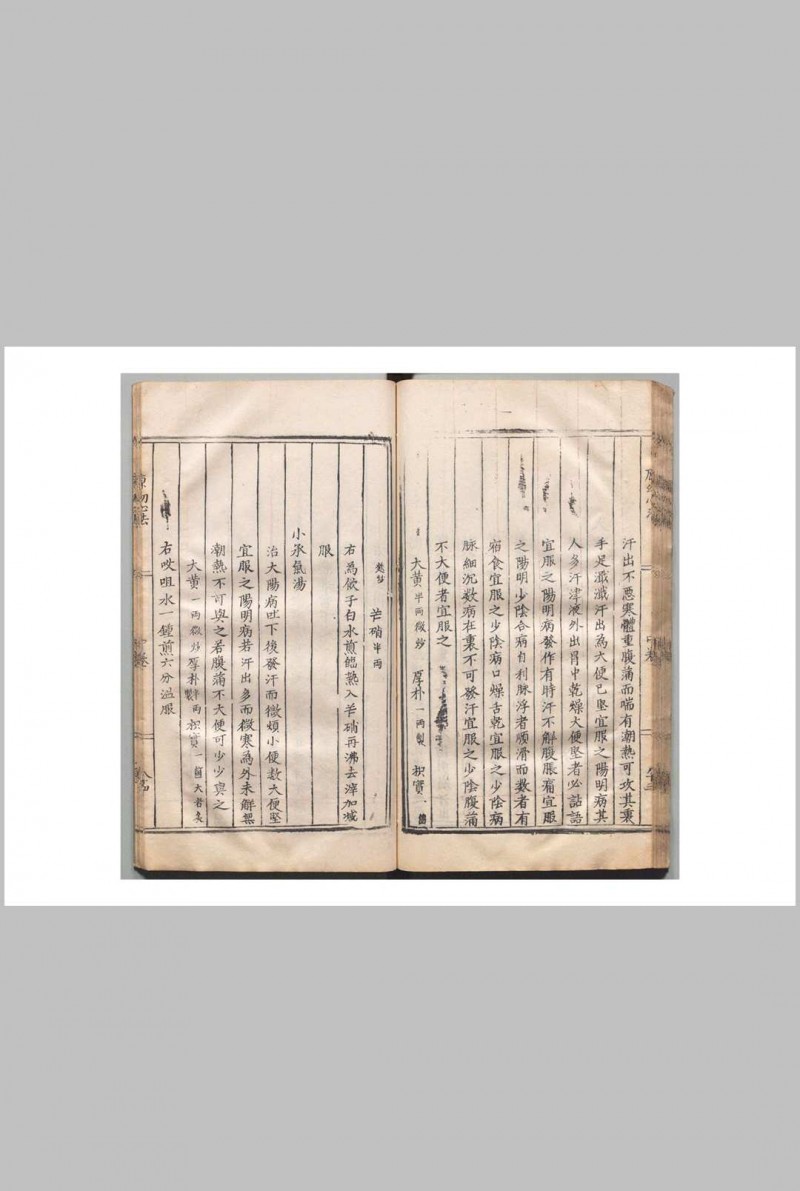 汗出不惡寒體重腹滿而喘有潮熱可攻其裏
手足濈濈汗出為大便已堅宜服之陽明病其
人多汗津液外出胃中乾燥大便堅者必譫語
宜服之陽明病發作有時汗不解腹脹痛宜服
之陽明少陰合病自利脉浮者順滑而數者有
宿食宜服之少陰病口燥舌乾宜服之少陰病
脉細沉數病在裏不可發汗宜服之少陰腹滿
不大便者宜服之
大黃半兩微炒 厚朴一兩製 枳實一
芒硝半兩
右為飲子白水煎臨熱入芒硝再沸去滓加減
服
小承氣湯
治大陽病吐下後發汗而微煩小便數大便堅
宜服之陽明病若汗出多而微寒為外未解無
潮熱不可與之若腹滿不大便可少少與之
大黃一兩微炒 厚朴半兩製 枳實一箇大者炙
右㕮咀水一鍾煎六分溫服